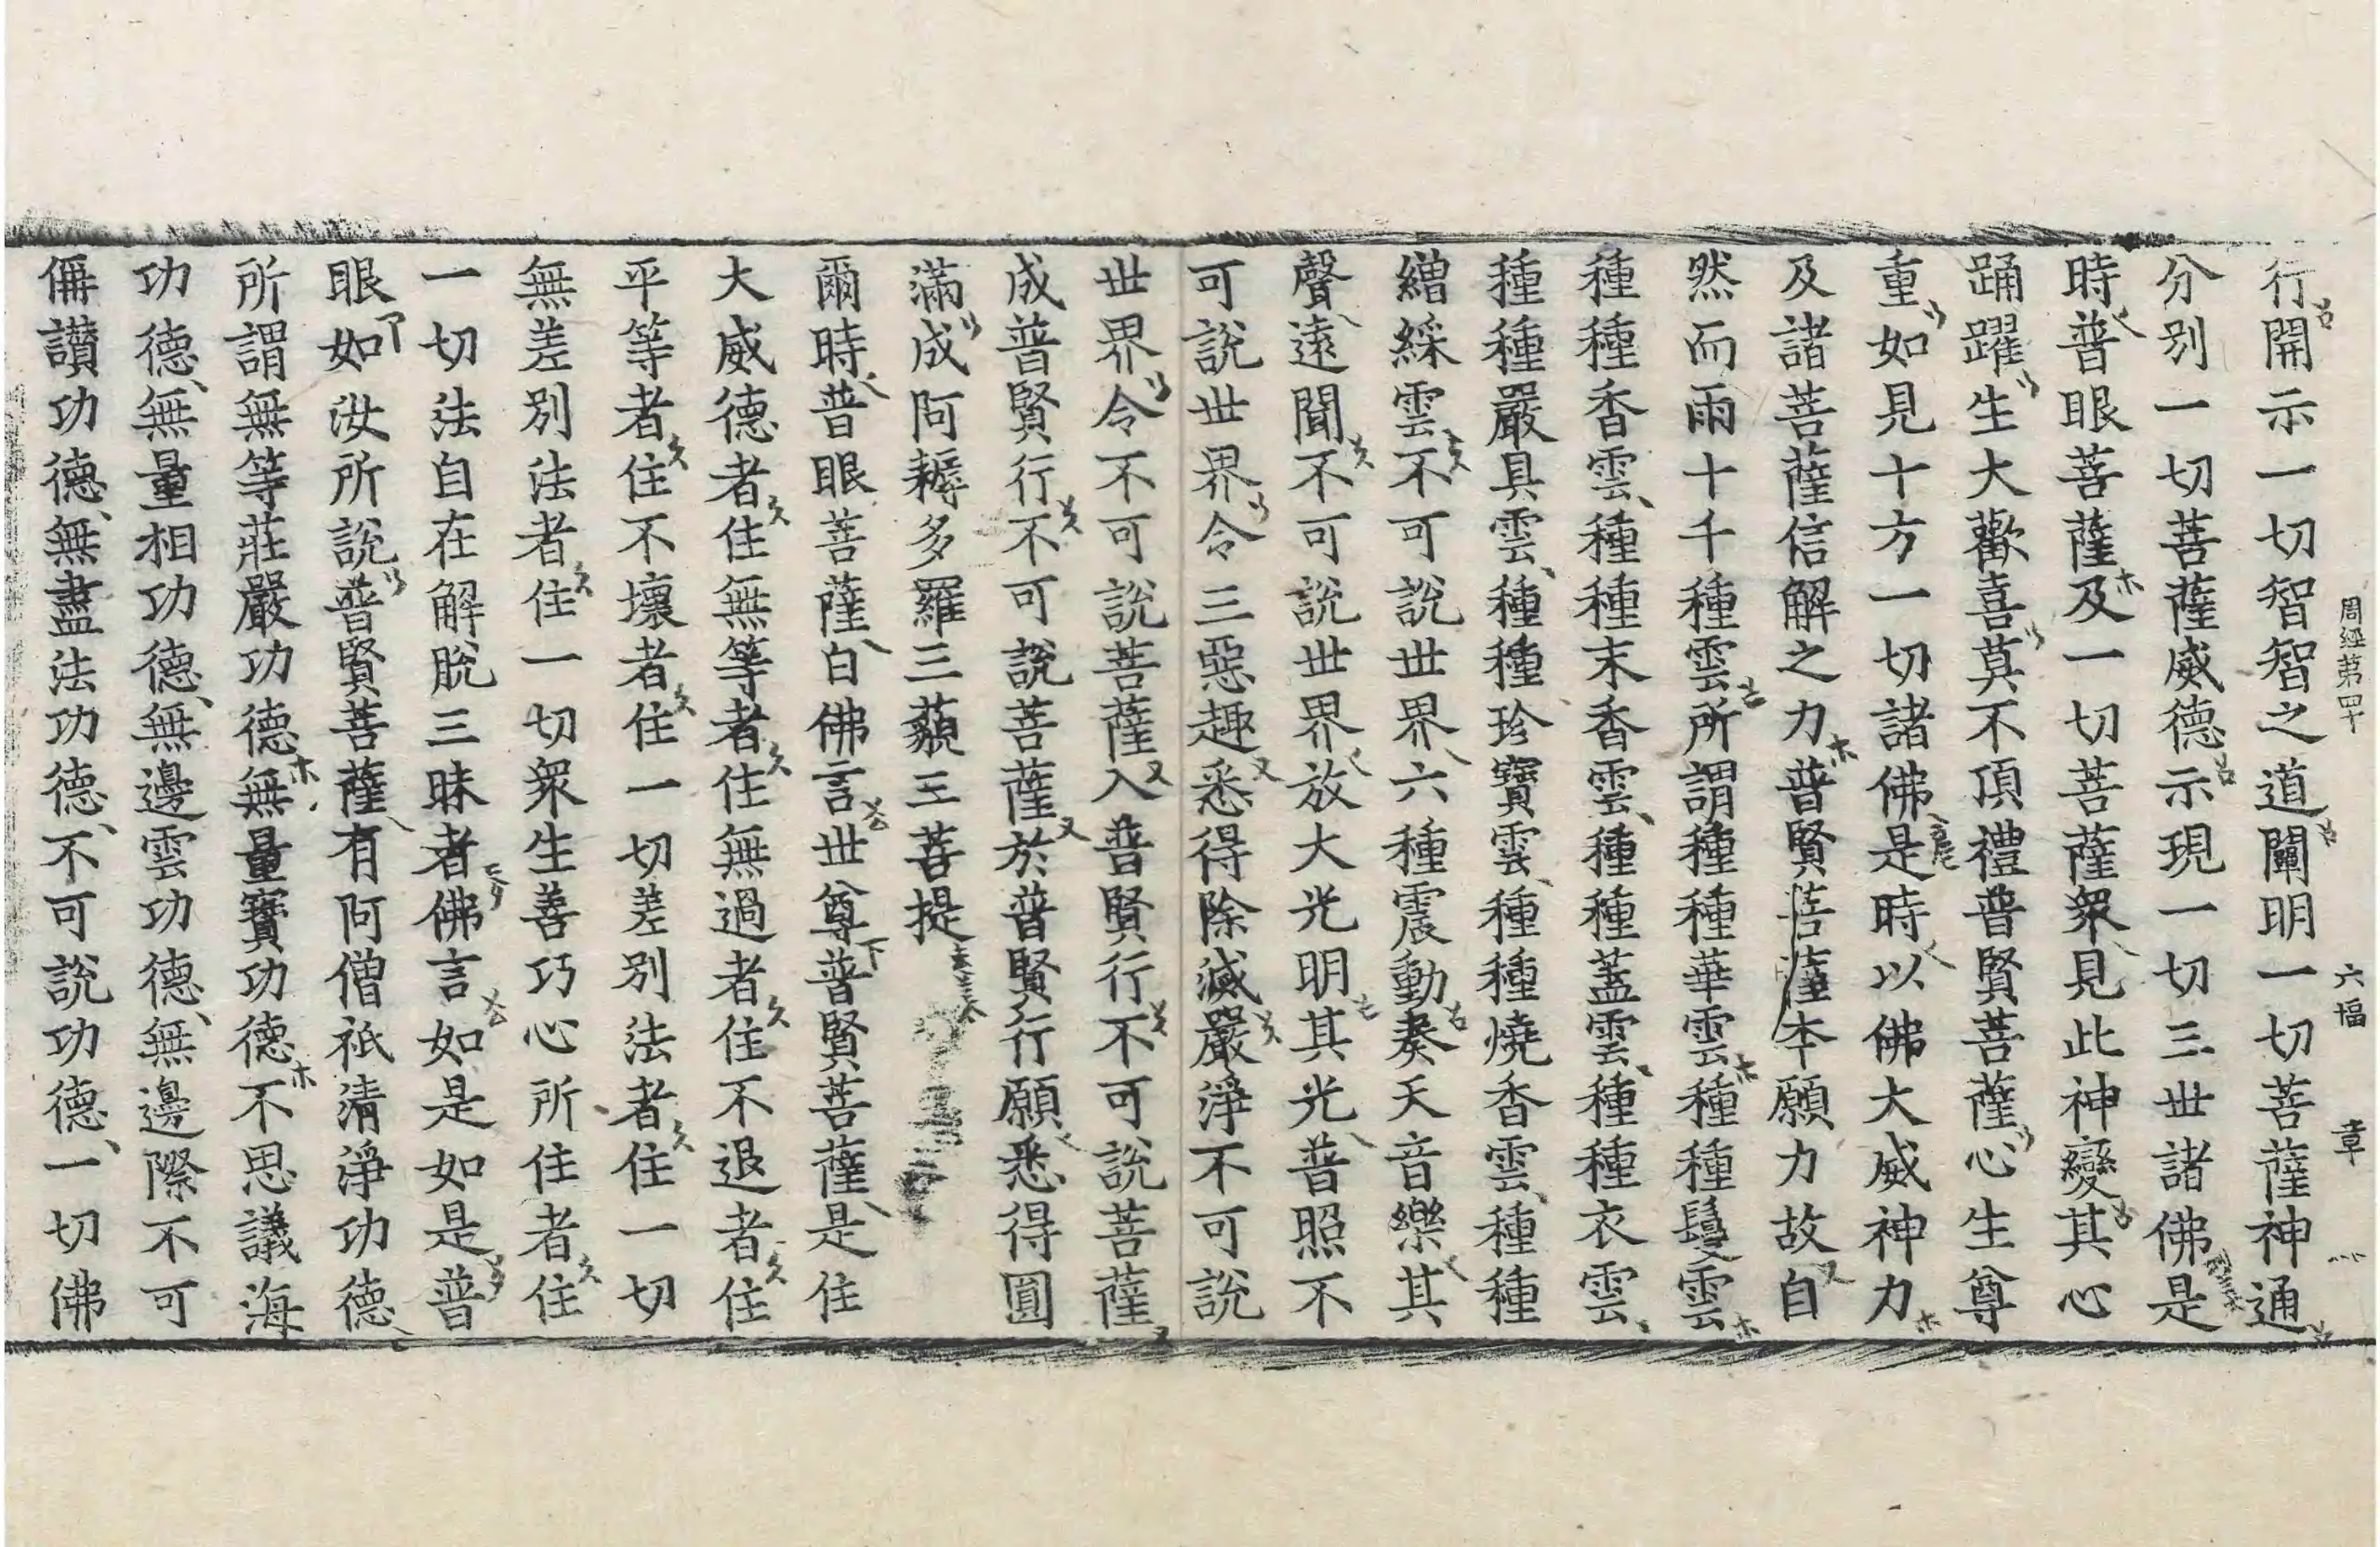 周經第四十 六幅 章
行開示一切智智之道闡明一切菩薩神通
分別一切菩薩威德示現一切三世諸佛是
時普眼菩薩及一切菩薩衆見此神變其心
踊躍生大歡喜莫不頂禮普賢菩薩心生尊
重如見十方一切諸佛是時以佛大威神力
及諸菩薩信解之力普賢菩薩本願力故自
然而雨十千種雲所謂種種華雲種種鬘雲
種種香雲種種末香雲種種蓋雲種種衣雲
種種嚴具雲種種珍寶雲種種燒香雲種種
繒綵雲不可說世界六種震動奏天音樂其
聲遠聞不可說世界放大光明其光普照不
可說世界令三惡趣悉得除滅嚴淨不可說
世界令不可說菩薩入普賢行不可說菩薩
成普賢行不可說菩薩於普賢行願悉得圓
滿成阿耨多羅三藐三菩提
爾時普眼菩薩白佛言世尊普賢菩薩是住
大威德者住無等者住無過者住不退者住
平等者住不壞者住一切差別法者住一切
無差別法者住一切衆生善巧心所住者住
一切法自在解脫三昧者佛言如是如是普
眼如汝所說普賢菩薩有阿僧祇清淨功德
所謂無等莊嚴功德無量寶功德不思議海
功德無量相功德無邊雲功德無邊際不可
偁讃功德無盡法功德不可說功德一切佛